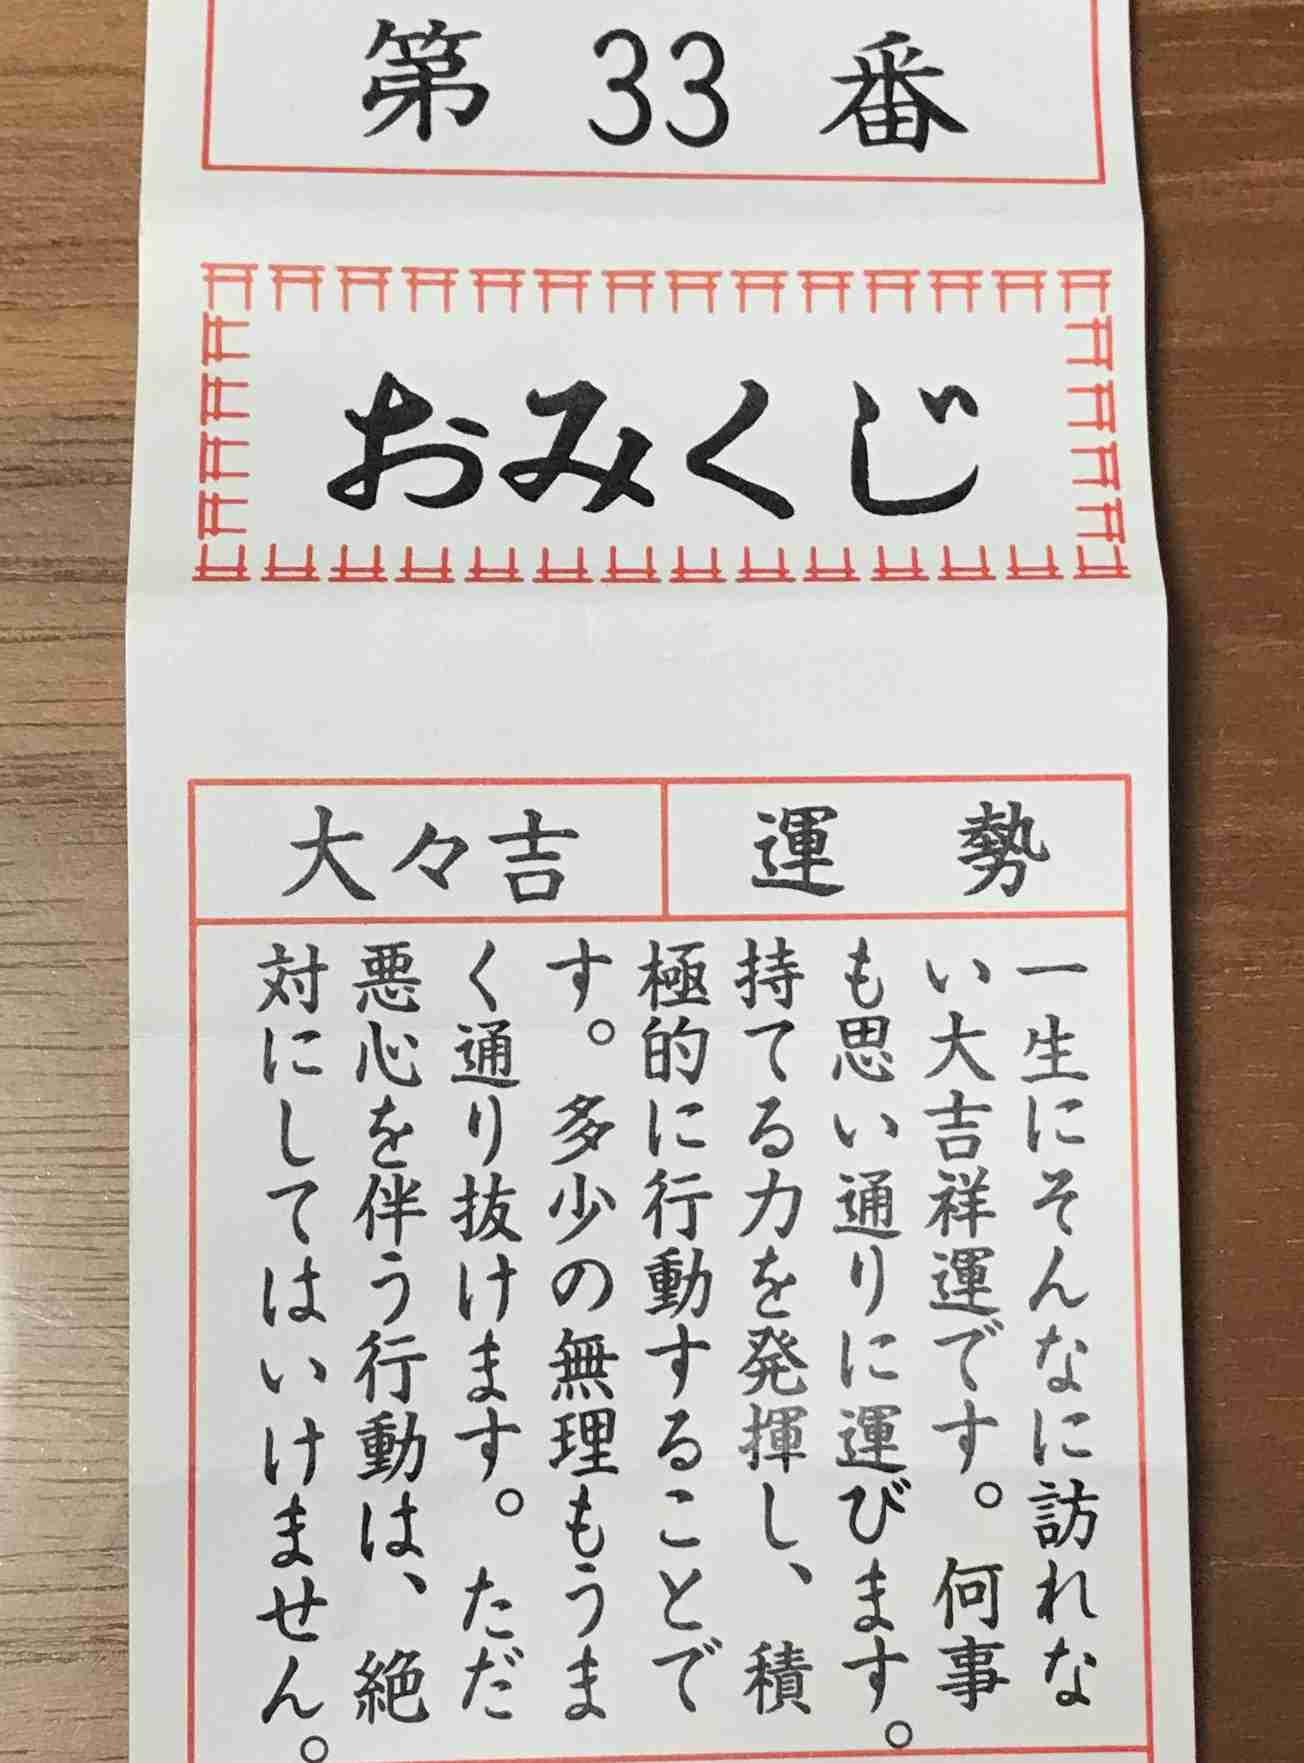 第33番
おみくじ
運勢
大々吉
一生にそんなに訪れな
い大吉祥運です。何事
も思い通りに運びます。
持てる力を発揮し、積
極的に行動することで
す。多少の無理もうま
く通り抜けます。ただ
悪心を伴う行動は、絶
対にしてはいけません。